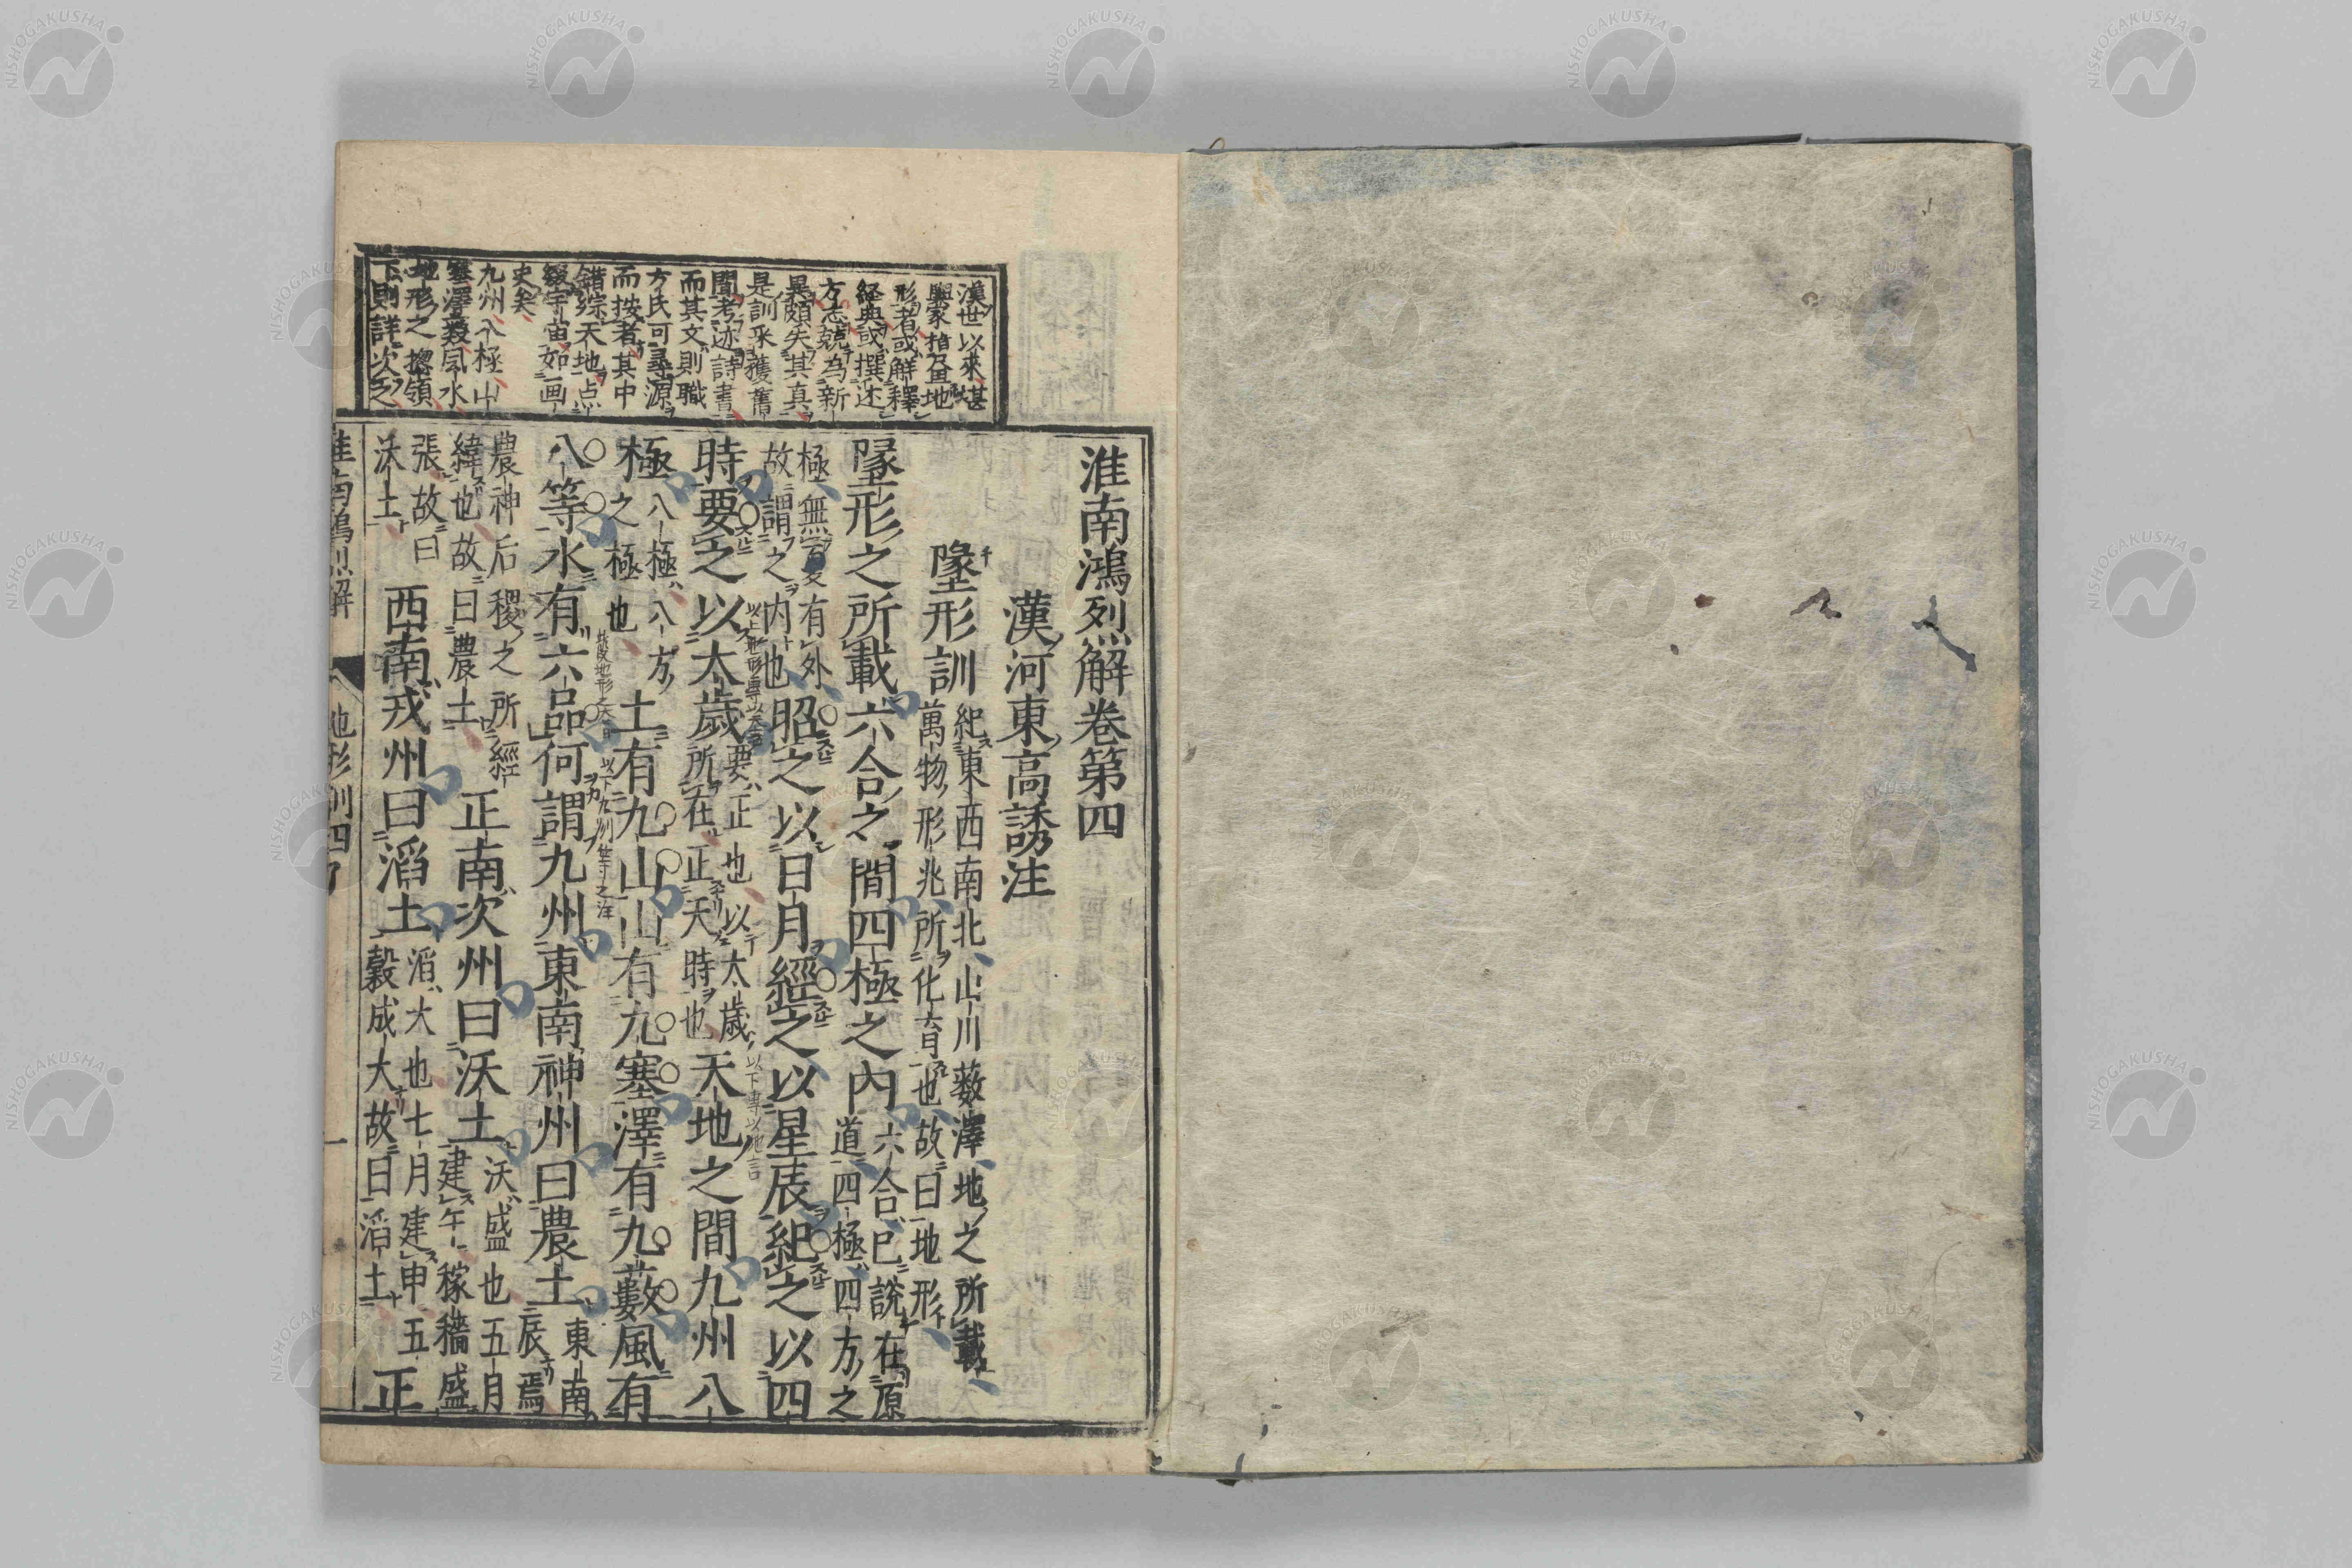 漢世以來堪
輿家指畫地
形者或解釋
経典或撰述
方志競為新
異頗失其真
是訓采獲舊
聞考迹詩書
而其文則職
方氏可尋源
而按者其中
錯綜天地点
綴宇宙如画
史矣
九州八極山
塞澤藪風水
地形之揔領
下則詳次之
淮南鴻烈解卷第四
漢河東高誘注
墬形訓
紀東西南北山川薮澤地之所載
萬物形兆所化育也故曰地形
墬形之所載六合之間四極之內
六合已説在原
道四極四方之
極無復有外
故謂之内也
昭之以日月經之以星辰紀之以四
時要之以太歲
要正也以太歳
所在正天時也
天地之間九州八
極
八極八方
之極也
土有九山山有九塞澤有九藪風有
八等水有六品何謂九州東南神州曰農土
東南
辰焉
農神后稷之所經
緯也故曰農土
正南次州曰沃土
沃盛也五月
建午稼穡盛
張故曰
沃土
西南戎州曰滔土
滔大也七月建申五
穀成大故曰滔土
正
以上地形專以天言
以下專以地言
以下九州等之注
淮南鴻烈解
地形訓四
一
NISHOGAKUSHA